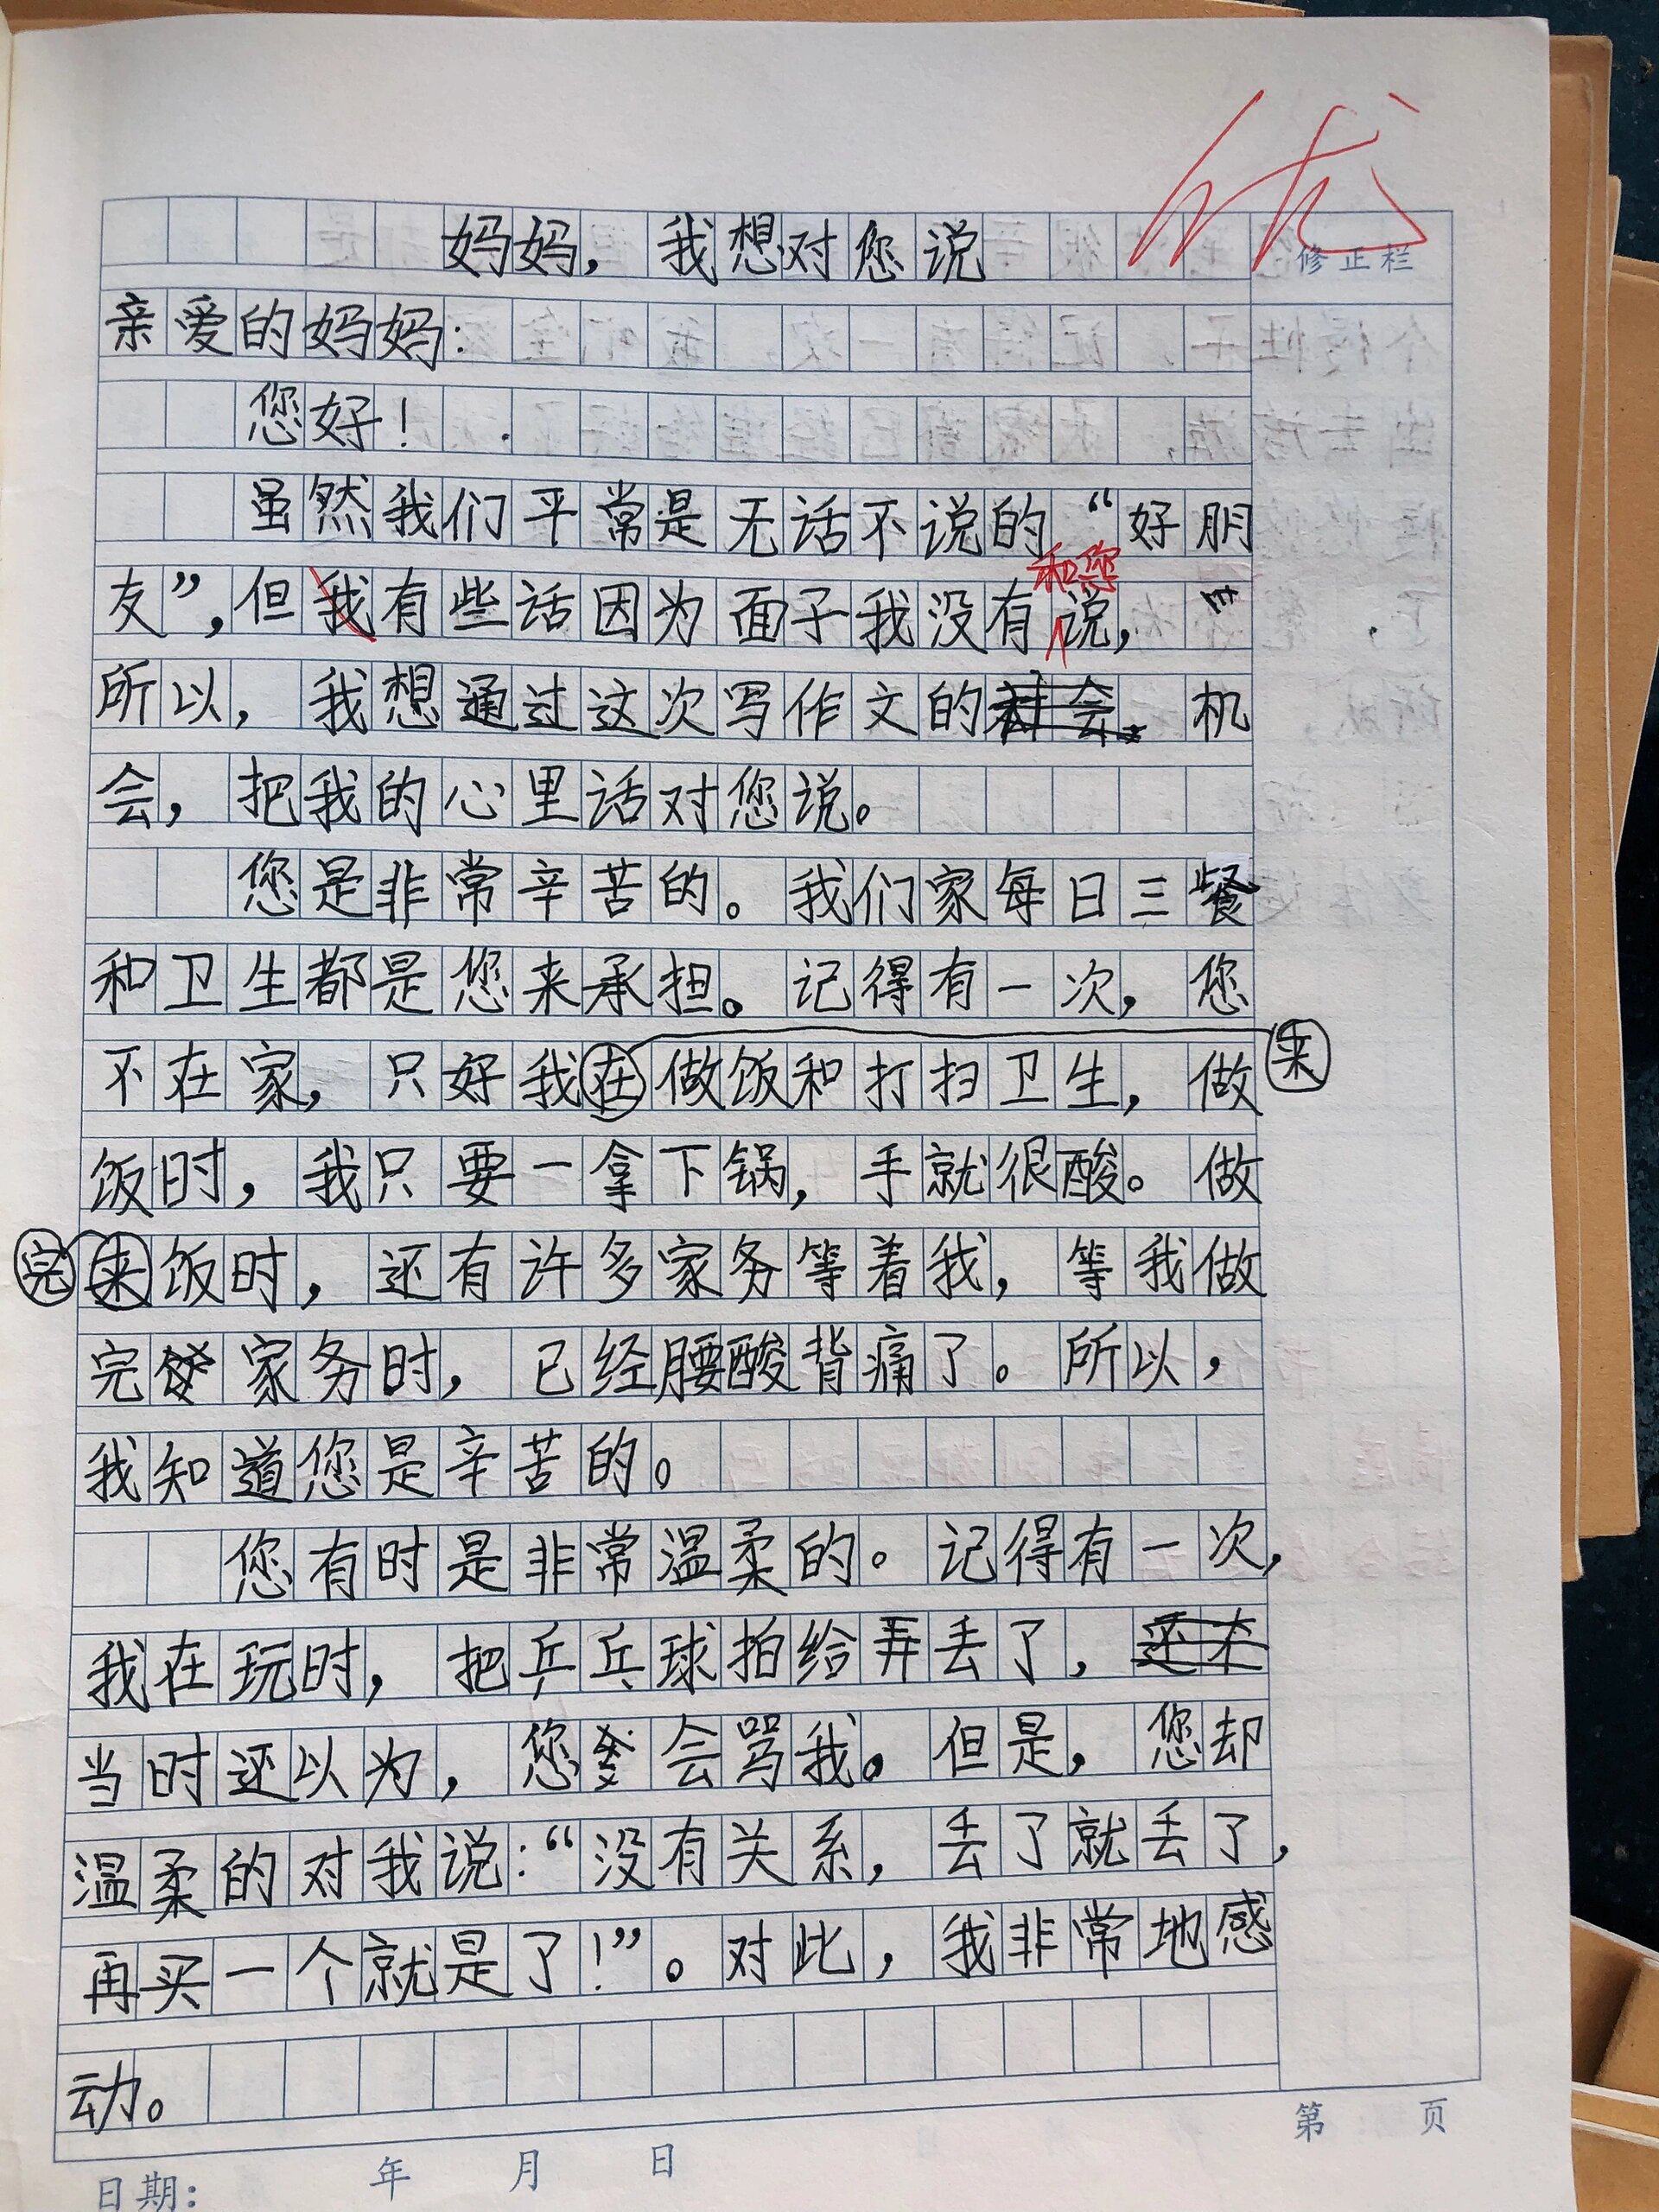 优
妈妈，我想对您说
修正栏
亲爱的妈妈：
您好！
虽然我们平常是无话不说的“好朋
和您
友”，但我有些话因为面子我没有说，
所以，我想通过这次写作文的社会。机
会，把我的心里话对您说。
您是非常辛苦的。我们家每日三餐
和卫生都是您来承担。记得有一次，您
不在家，只好我在做饭和打扫卫生，做来
饭时，我只要一拿下锅，手就很酸。做
完来饭时，还有许多家务等着我，等我做
完家务时，已经腰酸背痛了。所以，
我知道您是辛苦的。
您有时是非常温柔的。记得有一次，
我在玩时，把乒乓球拍给弄丢了，
当时还以为，您会骂我。但是，您却
温柔的对我说：“没有关系，丢了就丢了，
再买一个就是了！”。对此，我非常地感
动。
第 页
日期： 年 月 日